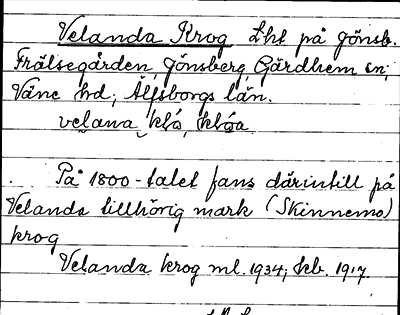 Velanda Krog Lht på Jönsb.
Frälsegården, Jönsberg, Gärdhem sn;
Väne hd; Älfsborgs län.
velana
På 1800-talet fans därintill på
Velanda tillhörig mark (Skinnemo)
krog
Velanda krog ml. 1934; kb. 1917.